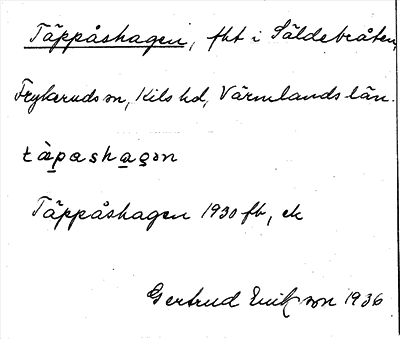 Täppåshagen, fht i Säldebråten,
Frykeruds sn, Kils hd, Värmlands län.
Täppåshagen 1930 fb, ek
Gertrud Eriksson 1936